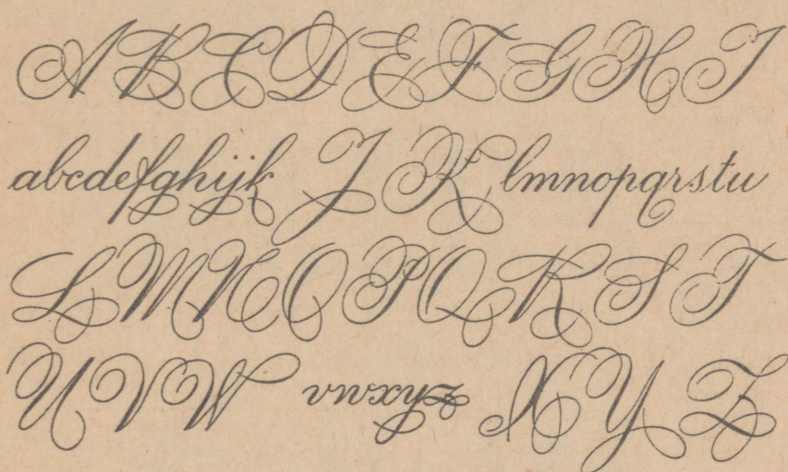 A B C D E F G H I
abcdefghijk J K lmnopqrstu
L M N O P Q R S T
U V W vwxyz X Y Z